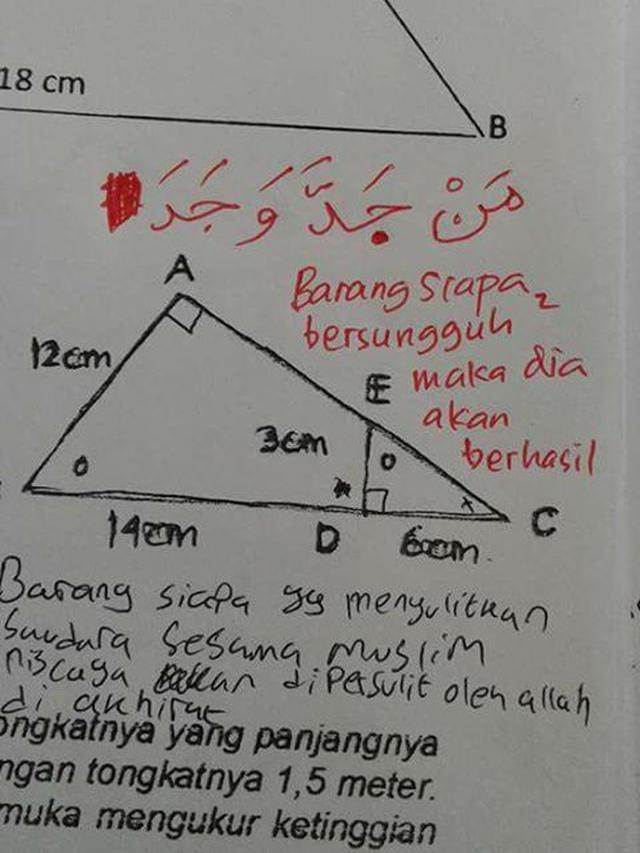 18 cm
B
مَنْ جَدَّ وَجَدَ
A
Barang siapa
bersungguh2
maka dia
akan
berhasil
12cm
E
3cm
o
o
x
14cm
D
6cm
C
Barang siapa yg menyulitkan
Saudara sesama muslim
niscaya akan dipersulit oleh allah
di akhirat
ongkatnya yang panjangnya
ngan tongkatnya 1,5 meter.
muka mengukur ketinggian